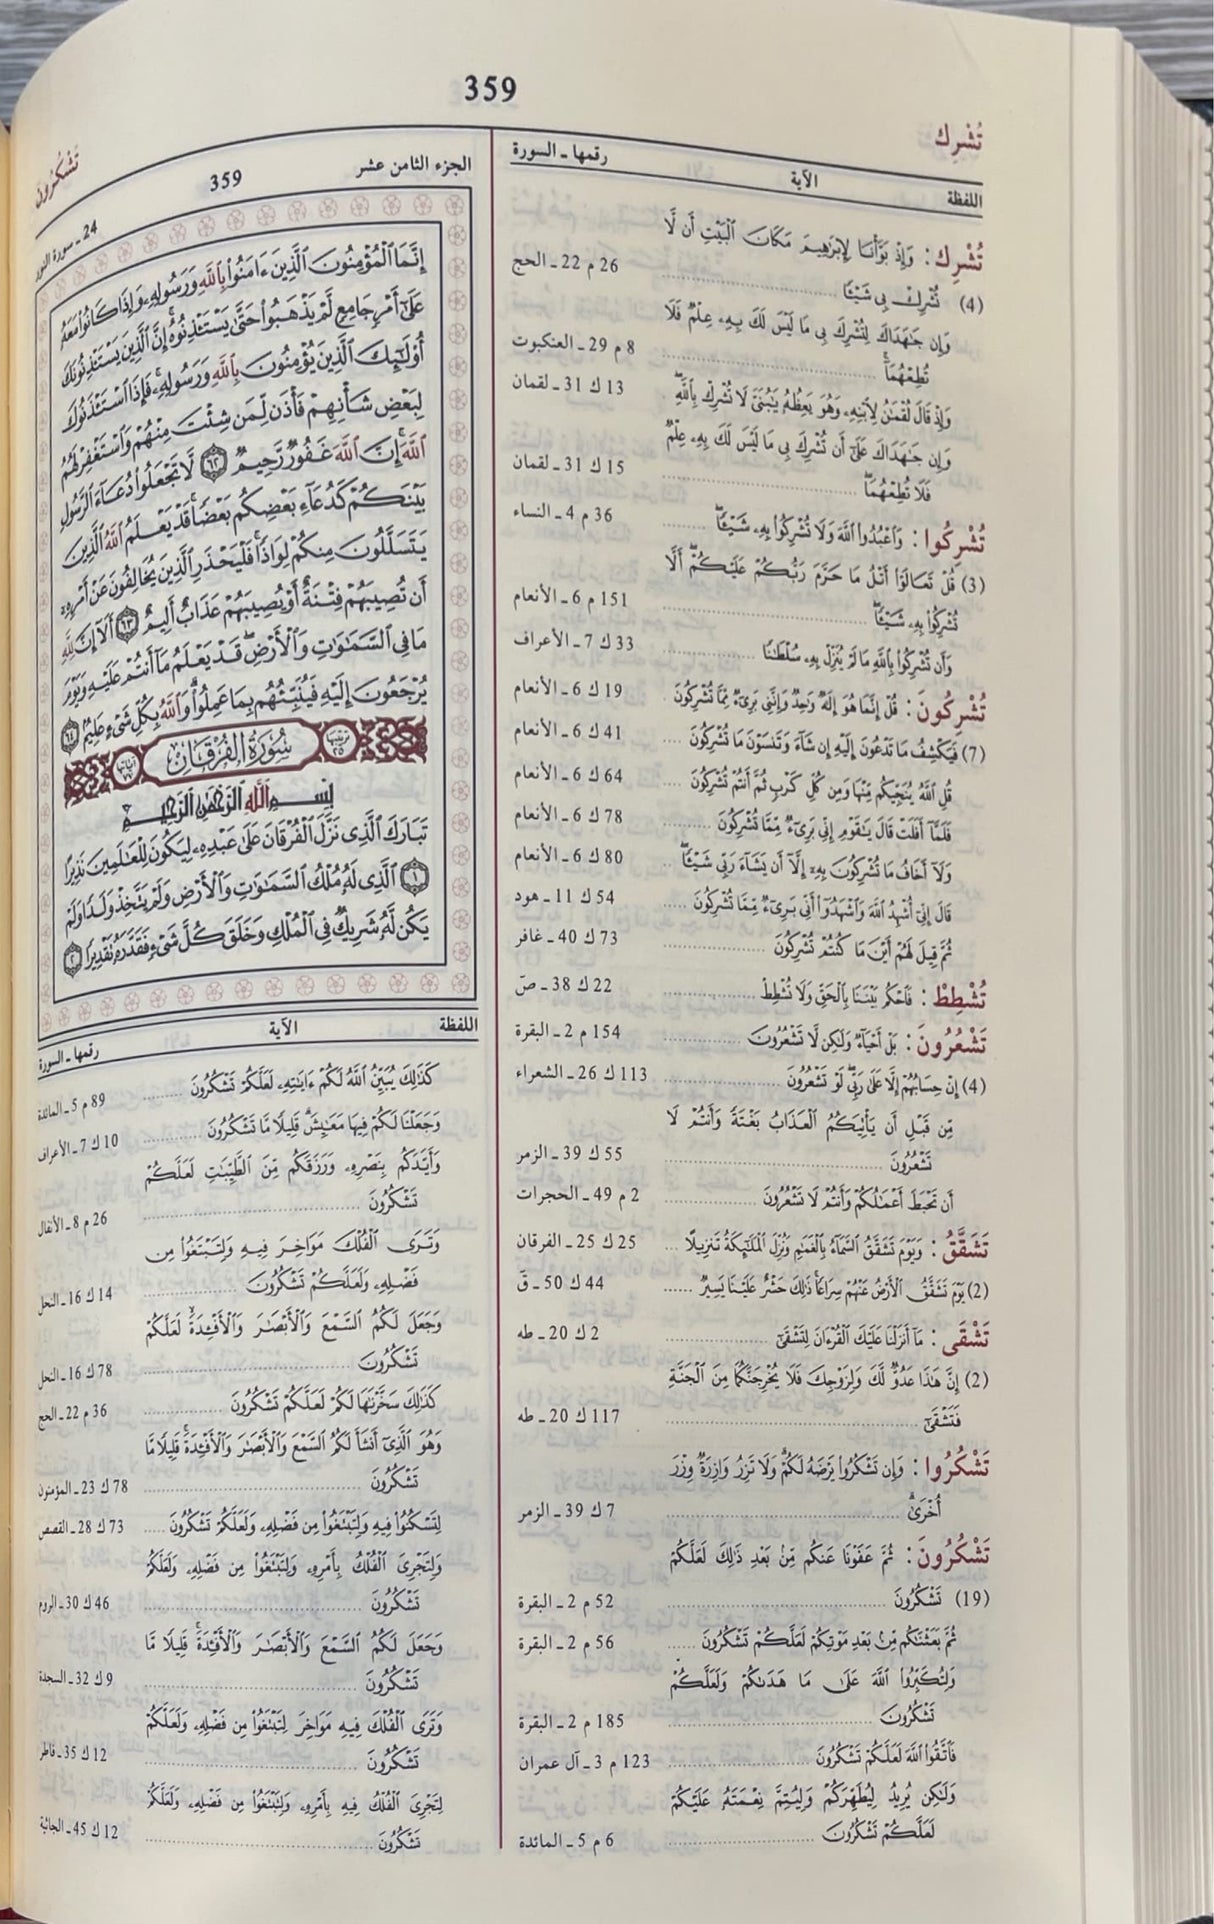 359
تُشْرِك
اللفظة الآية رقمها ـ السورة
تُشْرِك : وَإِذْ بَوَّأْنَا لِإِبْرَٰهِيمَ مَكَانَ ٱلْبَيْتِ أَن لَّا
(4) تُشْرِكْ بِى شَيْـًٔا ........ 26 م 22 ـ الحج
وَإِن جَـٰهَدَاكَ لِتُشْرِكَ بِى مَا لَيْسَ لَكَ بِهِۦ عِلْمٌ فَلَا
تُطِعْهُمَآ ........ 8 م 29 ـ العنكبوت
وَإِذْ قَالَ لُقْمَـٰنُ لِٱبْنِهِۦ وَهُوَ يَعِظُهُۥ يَـٰبُنَىَّ لَا تُشْرِكْ بِٱللَّهِ . 13 ك 31 ـ لقمان
وَإِن جَـٰهَدَاكَ عَلَىٰٓ أَن تُشْرِكَ بِى مَا لَيْسَ لَكَ بِهِۦ عِلْمٌ
فَلَا تُطِعْهُمَا ........ 15 ك 31 ـ لقمان
تُشْرِكُوا : وَٱعْبُدُوا۟ ٱللَّهَ وَلَا تُشْرِكُوا۟ بِهِۦ شَيْـًٔا ........ 36 م 4 ـ النساء
(3) قُلْ تَعَالَوْا۟ أَتْلُ مَا حَرَّمَ رَبُّكُمْ عَلَيْكُمْ أَلَّا
تُشْرِكُوا۟ بِهِۦ شَيْـًٔا ........ 151 م 6 ـ الأنعام
وَأَن تُشْرِكُوا۟ بِٱللَّهِ مَا لَمْ يُنَزِّلْ بِهِۦ سُلْطَـٰنًا ........ 33 ك 7 ـ الأعراف
تُشْرِكُونَ : قُلْ إِنَّمَا هُوَ إِلَـٰهٌ وَٰحِدٌ وَإِنَّنِى بَرِىٓءٌ مِّمَّا تُشْرِكُونَ . 19 ك 6 ـ الأنعام
(7) فَيَكْشِفُ مَا تَدْعُونَ إِلَيْهِ إِن شَآءَ وَتَنسَوْنَ مَا تُشْرِكُونَ .... 41 ك 6 ـ الأنعام
قُلِ ٱللَّهُ يُنَجِّيكُم مِّنْهَا وَمِن كُلِّ كَرْبٍ ثُمَّ أَنتُمْ تُشْرِكُونَ .... 64 ك 6 ـ الأنعام
فَلَمَّآ أَفَلَتْ قَالَ يَـٰقَوْمِ إِنِّى بَرِىٓءٌ مِّمَّا تُشْرِكُونَ ........ 78 ك 6 ـ الأنعام
وَلَآ أَخَافُ مَا تُشْرِكُونَ بِهِۦٓ إِلَّآ أَن يَشَآءَ رَبِّى شَيْـًٔا .. 80 ك 6 ـ الأنعام
قَالَ إِنِّىٓ أُشْهِدُ ٱللَّهَ وَٱشْهَدُوٓا۟ أَنِّى بَرِىٓءٌ مِّمَّا تُشْرِكُونَ .... 54 ك 11 ـ هود
ثُمَّ قِيلَ لَهُمْ أَيْنَ مَا كُنتُمْ تُشْرِكُونَ ........ 73 ك 40 ـ غافر
تُشْطِطْ : فَٱحْكُم بَيْنَنَا بِٱلْحَقِّ وَلَا تُشْطِطْ ........ 22 ك 38 ـ صٓ
تَشْعُرُونَ : بَلْ أَحْيَآءٌ وَلَـٰكِن لَّا تَشْعُرُونَ ........ 154 م 2 ـ البقرة
(4) إِنْ حِسَابُهُمْ إِلَّا عَلَىٰ رَبِّى لَوْ تَشْعُرُونَ ........ 113 ك 26 ـ الشعراء
مِّن قَبْلِ أَن يَأْتِيَكُمُ ٱلْعَذَابُ بَغْتَةً وَأَنتُمْ لَا
تَشْعُرُونَ ........ 55 ك 39 ـ الزمر
أَن تَحْبَطَ أَعْمَـٰلُكُمْ وَأَنتُمْ لَا تَشْعُرُونَ ........ 2 م 49 ـ الحجرات
تَشَقَّقُ : وَيَوْمَ تَشَقَّقُ ٱلسَّمَآءُ بِٱلْغَمَـٰمِ وَنُزِّلَ ٱلْمَلَـٰٓئِكَةُ تَنزِيلًا ... 25 ك 25 ـ الفرقان
(2) يَوْمَ تَشَقَّقُ ٱلْأَرْضُ عَنْهُمْ سِرَاعًا ذَٰلِكَ حَشْرٌ عَلَيْنَا يَسِيرٌ ...... 44 ك 50 ـ قٓ
تَشْقَى : مَآ أَنزَلْنَا عَلَيْكَ ٱلْقُرْءَانَ لِتَشْقَىٰٓ ........ 2 ك 20 ـ طه
(2) إِنَّ هَـٰذَا عَدُوٌّ لَّكَ وَلِزَوْجِكَ فَلَا يُخْرِجَنَّكُمَا مِنَ ٱلْجَنَّةِ
فَتَشْقَىٰٓ ........ 117 ك 20 ـ طه
تَشْكُرُوا : وَإِن تَشْكُرُوا۟ يَرْضَهُ لَكُمْ وَلَا تَزِرُ وَازِرَةٌ وِزْرَ
أُخْرَىٰ ........ 7 ك 39 ـ الزمر
تَشْكُرُونَ : ثُمَّ عَفَوْنَا عَنكُم مِّنۢ بَعْدِ ذَٰلِكَ لَعَلَّكُمْ
(19) تَشْكُرُونَ ........ 52 م 2 ـ البقرة
ثُمَّ بَعَثْنَـٰكُم مِّنۢ بَعْدِ مَوْتِكُمْ لَعَلَّكُمْ تَشْكُرُونَ ..... 56 م 2 ـ البقرة
وَلِتُكَبِّرُوا۟ ٱللَّهَ عَلَىٰ مَا هَدَىٰكُمْ وَلَعَلَّكُمْ
تَشْكُرُونَ ........ 185 م 2 ـ البقرة
فَٱتَّقُوا۟ ٱللَّهَ لَعَلَّكُمْ تَشْكُرُونَ ........ 123 م 3 ـ آل عمران
وَلَـٰكِن يُرِيدُ لِيُطَهِّرَكُمْ وَلِيُتِمَّ نِعْمَتَهُۥ عَلَيْكُمْ
لَعَلَّكُمْ تَشْكُرُونَ ........ 6 م 5 ـ المائدة
تَشْكُرُون
الجزء الثامن عشر 359 24 ـ سورة النور
إِنَّمَا ٱلْمُؤْمِنُونَ ٱلَّذِينَ ءَامَنُوا۟ بِٱللَّهِ وَرَسُولِهِۦ وَإِذَا كَانُوا۟ مَعَهُۥ
عَلَىٰٓ أَمْرٍ جَامِعٍ لَّمْ يَذْهَبُوا۟ حَتَّىٰ يَسْتَـْٔذِنُوهُ إِنَّ ٱلَّذِينَ يَسْتَـْٔذِنُونَكَ
أُو۟لَـٰٓئِكَ ٱلَّذِينَ يُؤْمِنُونَ بِٱللَّهِ وَرَسُولِهِۦ فَإِذَا ٱسْتَـْٔذَنُوكَ
لِبَعْضِ شَأْنِهِمْ فَأْذَن لِّمَن شِئْتَ مِنْهُمْ وَٱسْتَغْفِرْ لَهُمُ
ٱللَّهَ إِنَّ ٱللَّهَ غَفُورٌ رَّحِيمٌ ٦٢ لَّا تَجْعَلُوا۟ دُعَآءَ ٱلرَّسُولِ
بَيْنَكُمْ كَدُعَآءِ بَعْضِكُم بَعْضًا قَدْ يَعْلَمُ ٱللَّهُ ٱلَّذِينَ
يَتَسَلَّلُونَ مِنكُمْ لِوَاذًا فَلْيَحْذَرِ ٱلَّذِينَ يُخَالِفُونَ عَنْ أَمْرِهِۦٓ
أَن تُصِيبَهُمْ فِتْنَةٌ أَوْ يُصِيبَهُمْ عَذَابٌ أَلِيمٌ ٦٣ أَلَآ إِنَّ لِلَّهِ
مَا فِى ٱلسَّمَـٰوَٰتِ وَٱلْأَرْضِ قَدْ يَعْلَمُ مَآ أَنتُمْ عَلَيْهِ وَيَوْمَ
يُرْجَعُونَ إِلَيْهِ فَيُنَبِّئُهُم بِمَا عَمِلُوا۟ وَٱللَّهُ بِكُلِّ شَىْءٍ عَلِيمٌ ٦٤
ترتيبها ٢٥ سُورَةُ الفُرْقَان آياتها ٧٧
بِسْمِ ٱللَّهِ ٱلرَّحْمَـٰنِ ٱلرَّحِيمِ
تَبَارَكَ ٱلَّذِى نَزَّلَ ٱلْفُرْقَانَ عَلَىٰ عَبْدِهِۦ لِيَكُونَ لِلْعَـٰلَمِينَ نَذِيرًا
١ ٱلَّذِى لَهُۥ مُلْكُ ٱلسَّمَـٰوَٰتِ وَٱلْأَرْضِ وَلَمْ يَتَّخِذْ وَلَدًا وَلَمْ
يَكُن لَّهُۥ شَرِيكٌ فِى ٱلْمُلْكِ وَخَلَقَ كُلَّ شَىْءٍ فَقَدَّرَهُۥ تَقْدِيرًا ٢
اللفظة الآية رقمها ـ السورة
كَذَٰلِكَ يُبَيِّنُ ٱللَّهُ لَكُمْ ءَايَـٰتِهِۦ لَعَلَّكُمْ تَشْكُرُونَ ........ 89 م 5 ـ المائدة
وَجَعَلْنَا لَكُمْ فِيهَا مَعَـٰيِشَ قَلِيلًا مَّا تَشْكُرُونَ ........ 10 ك 7 ـ الأعراف
وَأَيَّدَكُم بِنَصْرِهِۦ وَرَزَقَكُم مِّنَ ٱلطَّيِّبَـٰتِ لَعَلَّكُمْ
تَشْكُرُونَ ........ 26 م 8 ـ الأنفال
وَتَرَى ٱلْفُلْكَ مَوَاخِرَ فِيهِ وَلِتَبْتَغُوا۟ مِن
فَضْلِهِۦ وَلَعَلَّكُمْ تَشْكُرُونَ ........ 14 ك 16 ـ النحل
وَجَعَلَ لَكُمُ ٱلسَّمْعَ وَٱلْأَبْصَـٰرَ وَٱلْأَفْـِٔدَةَ لَعَلَّكُمْ
تَشْكُرُونَ ........ 78 ك 16 ـ النحل
كَذَٰلِكَ سَخَّرْنَـٰهَا لَكُمْ لَعَلَّكُمْ تَشْكُرُونَ ........ 36 م 22 ـ الحج
وَهُوَ ٱلَّذِىٓ أَنشَأَ لَكُمُ ٱلسَّمْعَ وَٱلْأَبْصَـٰرَ وَٱلْأَفْـِٔدَةَ قَلِيلًا مَّا
تَشْكُرُونَ ........ 78 ك 23 ـ المؤمنون
لِتَسْكُنُوا۟ فِيهِ وَلِتَبْتَغُوا۟ مِن فَضْلِهِۦ وَلَعَلَّكُمْ تَشْكُرُونَ ..... 73 ك 28 ـ القصص
وَلِتَجْرِىَ ٱلْفُلْكُ بِأَمْرِهِۦ وَلِتَبْتَغُوا۟ مِن فَضْلِهِۦ وَلَعَلَّكُمْ
تَشْكُرُونَ ........ 46 ك 30 ـ الروم
وَجَعَلَ لَكُمُ ٱلسَّمْعَ وَٱلْأَبْصَـٰرَ وَٱلْأَفْـِٔدَةَ قَلِيلًا مَّا
تَشْكُرُونَ ........ 9 ك 32 ـ السجدة
وَتَرَى ٱلْفُلْكَ فِيهِ مَوَاخِرَ لِتَبْتَغُوا۟ مِن فَضْلِهِۦ وَلَعَلَّكُمْ
تَشْكُرُونَ ........ 12 ك 35 ـ فاطر
لِتَجْرِىَ ٱلْفُلْكُ فِيهِ بِأَمْرِهِۦ وَلِتَبْتَغُوا۟ مِن فَضْلِهِۦ وَلَعَلَّكُمْ
تَشْكُرُونَ ........ 12 ك 45 ـ الجاثية